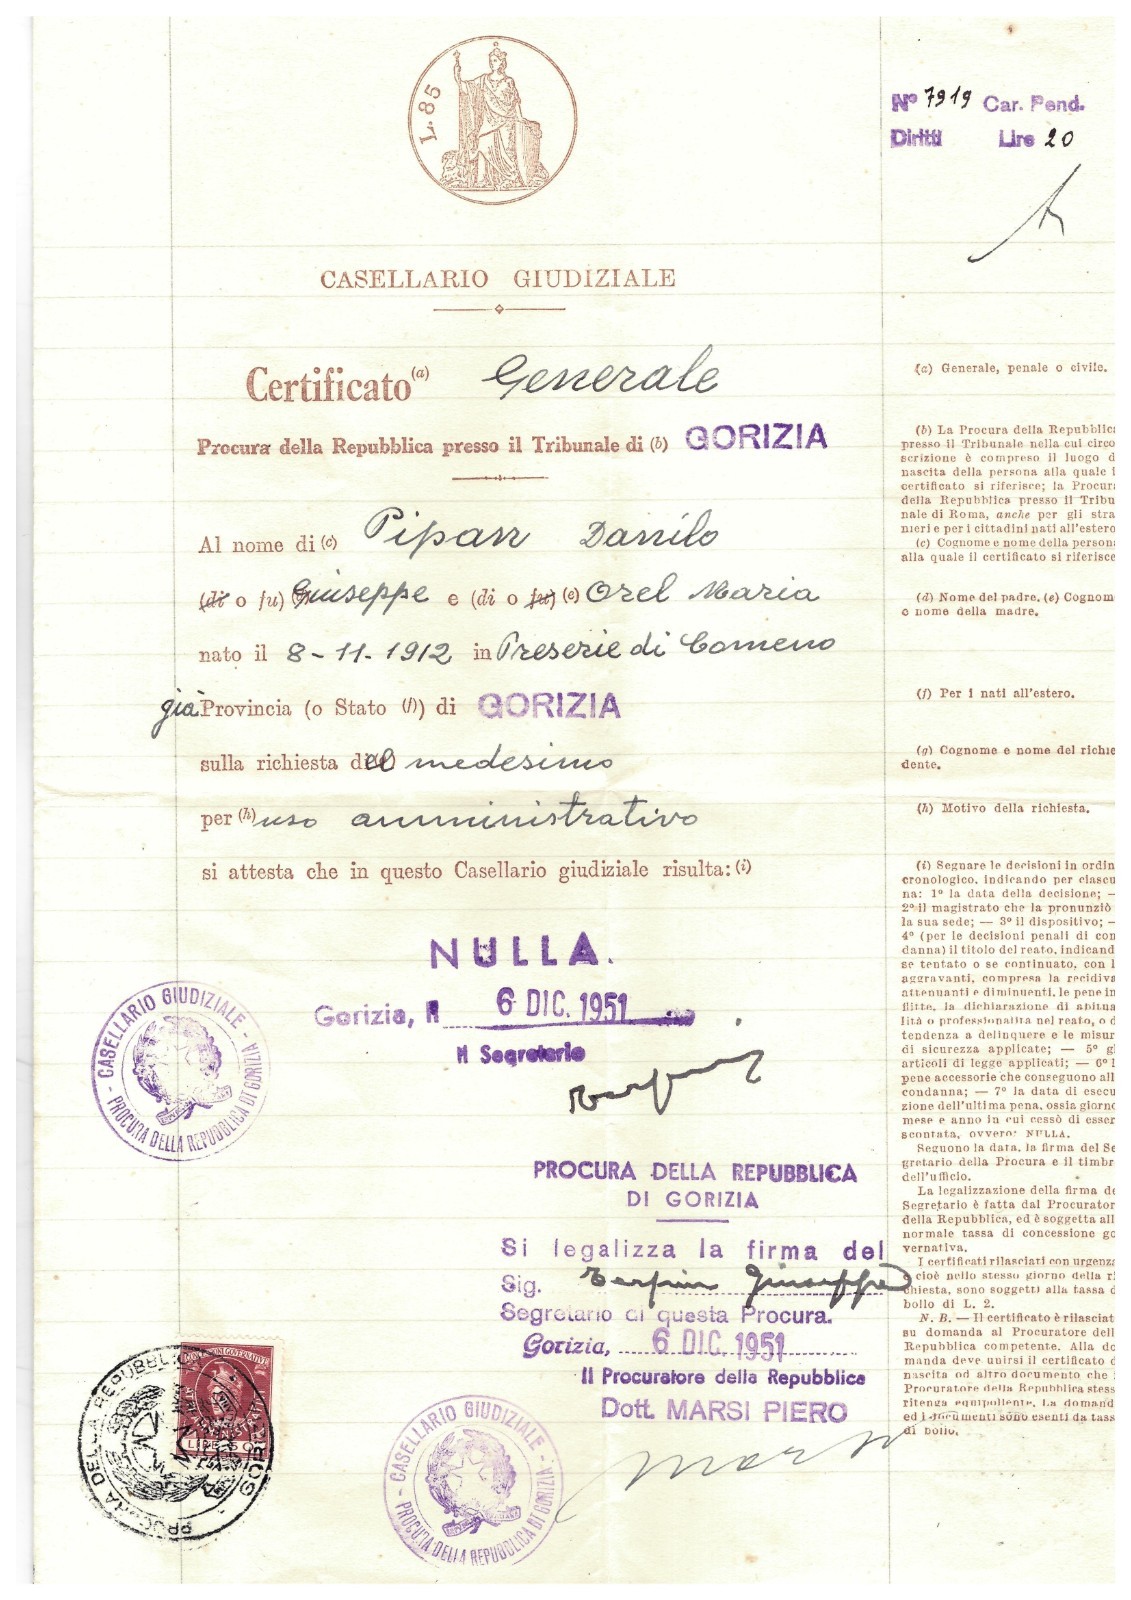 L. 85
Nº 7919 Car. Pend.
Diritti Lire 20
CASELLARIO GIUDIZIALE
Certificato (a) Generale
Procura della Repubblica presso il Tribunale di (b) GORIZIA
Al nome di (c) Pipan Danilo
(di o fu) Giuseppe e (di o fu) (e) Orel Maria
nato il 8-11-1912 in Preserie di Comeno
già Provincia (o Stato (f)) di GORIZIA
sulla richiesta del medesimo
per (h) uso amministrativo
si attesta che in questo Casellario giudiziale risulta: (i)
NULLA.
Gorizia, li 6 DIC. 1951
Il Segretario
CASELLARIO GIUDIZIALE - PROCURA DELLA REPUBBLICA DI GORIZIA -
PROCURA DELLA REPUBBLICA
DI GORIZIA
Si legalizza la firma del
Sig. Terpin Giuseppe
Segretario di questa Procura.
Gorizia, 6 DIC. 1951
Il Procuratore della Repubblica
Dott. MARSI PIERO
CASELLARIO GIUDIZIALE - PROCURA DELLA REPUBBLICA DI GORIZIA -
PROCURA DELLA REPUBBLICA
GOVERNATIVE
LIRE
(a) Generale, penale o civile.
(b) La Procura della Repubblica
presso il Tribunale nella cui circo
scrizione è compreso il luogo d
nascita della persona alla quale i
certificato si riferisce; la Procura
della Repubblica presso il Tribu
nale di Roma, anche per gli stra
nieri e per i cittadini nati all'estero
(c) Cognome e nome della persona
alla quale il certificato si riferisce
(d) Nome del padre. (e) Cognom
o nome della madre.
(f) Per i nati all'estero.
(g) Cognome e nome del richie
dente.
(h) Motivo della richiesta.
(i) Segnare le decisioni in ordin
cronologico, indicando per ciascu
na: 1º la data della decisione; —
2º il magistrato che la pronunziò
la sua sede; — 3º il dispositivo; —
4º (per le decisioni penali di con
danna) il titolo del reato, indicand
se tentato o se continuato, con l
aggravanti, compresa la recidiva
attenuanti e diminuenti, le pene in
flitte, la dichiarazione di abitua
lità o professionalità nel reato, o d
tendenza a delinquere e le misur
di sicurezza applicate; — 5º gl
articoli di legge applicati; — 6º l
pene accessorie che conseguono all
condanna; — 7º la data di esecu
zione dell'ultima pena, ossia giorno
mese e anno in cui cessò di esser
scontata, ovvero: NULLA.
Seguono la data, la firma del Se
gretario della Procura e il timbr
dell'ufficio.
La legalizzazione della firma de
Segretario è fatta dal Procurator
della Repubblica, ed è soggetta all
normale tassa di concessione go
vernativa.
I certificati rilasciati con urgenza
cioè nello stesso giorno della ri
chiesta, sono soggetti alla tassa d
bollo di L. 2.
N. B. — Il certificato è rilasciat
su domanda al Procuratore dell
Repubblica competente. Alla do
manda deve unirsi il certificato d
nascita od altro documento che i
Procuratore della Repubblica stess
ritenga equipollente. La domand
ed i documenti sono esenti da tass
di bollo.